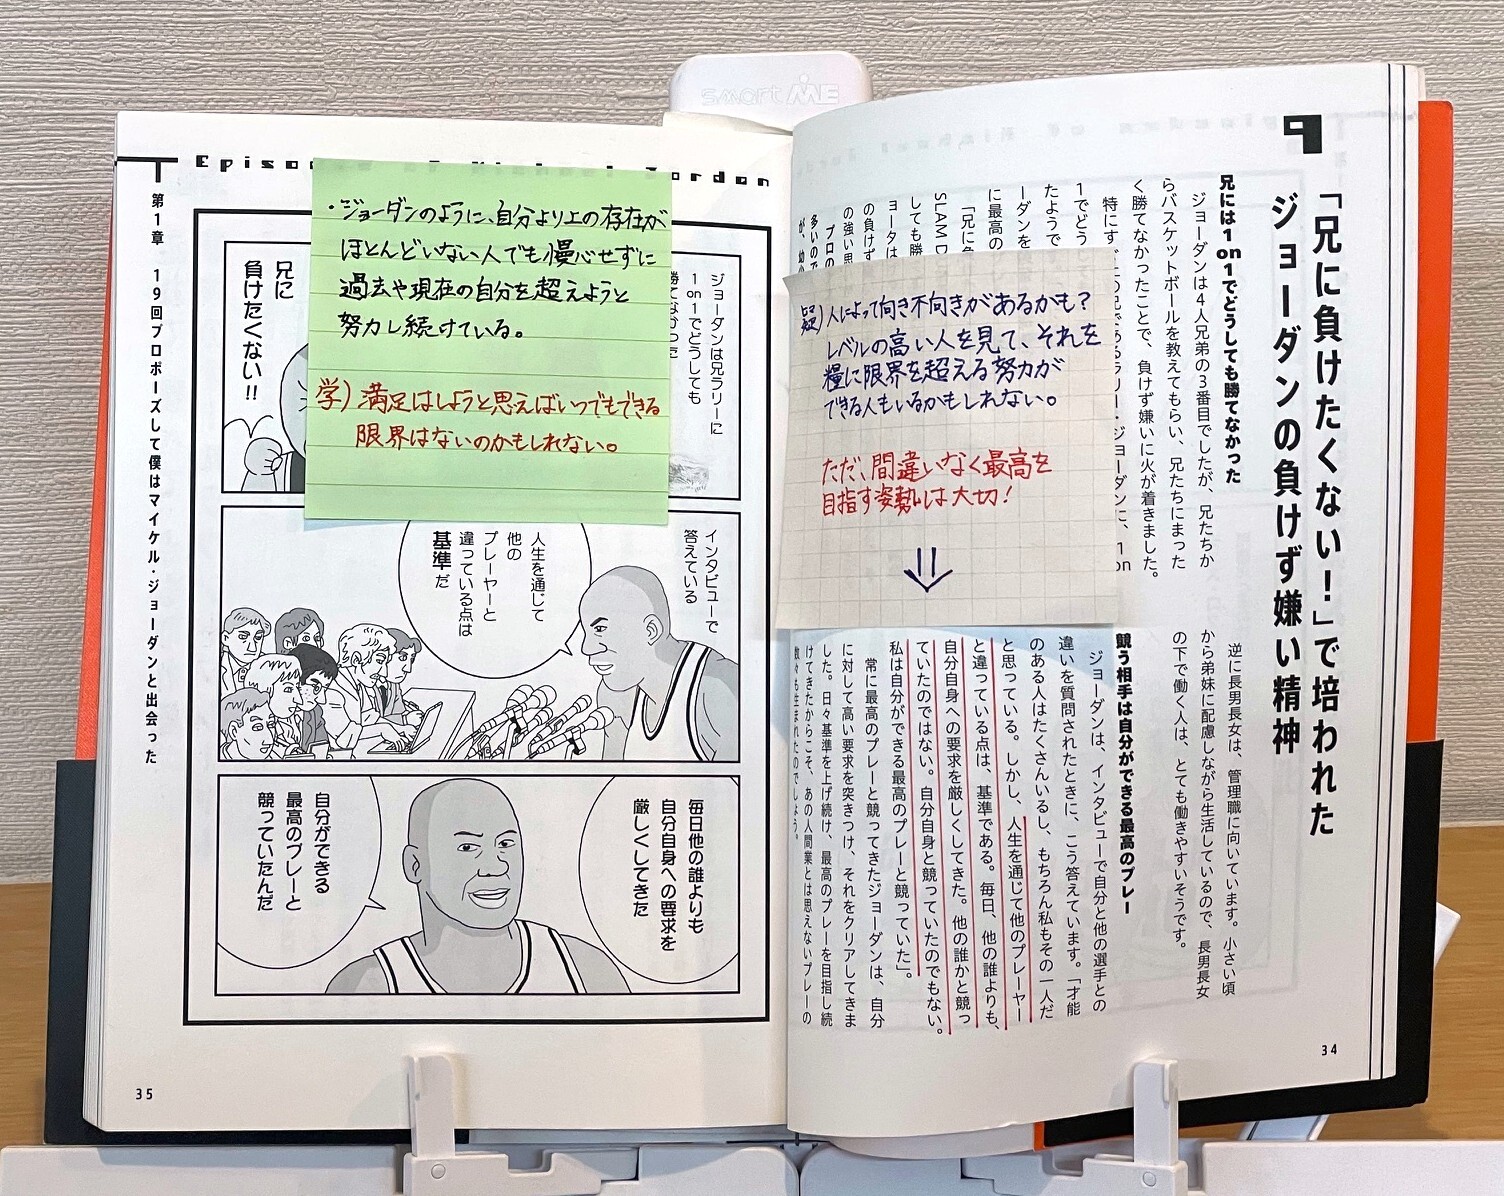 smart ME
9
「兄に負けたくない！」で培われた
ジョーダンの負けず嫌い精神
兄には1on1でどうしても勝てなかった
ジョーダンは4人兄弟の3番目でしたが、兄たちか
らバスケットボールを教えてもらい、兄たちにまった
く勝てなかったことで、負けず嫌いに火が着きました。
特にす
ジョーダンに、1on
1でどう
たようで
ーダンを
に最高の
「兄に負
SLAM D
しても勝
ョータは
の負けず
の強い思
プロの
多いので
が、幼少
疑)人によって向き不向きがあるかも?
レベルの高い人を見て、それを
糧に限界を超える努力が
できる人もいるかもしれない。
ただ、間違いなく最高を
目指す姿勢は大切!
⇓
逆に長男長女は、管理職に向いています。小さい頃
から弟妹に配慮しながら生活しているので、長男長女
の下で働く人は、とても働きやすいそうです。
競う相手は自分ができる最高のプレー
ジョーダンは、インタビューで自分と他の選手との
違いを質問されたときに、こう答えています。「才能
のある人はたくさんいるし、もちろん私もその一人だ
と思っている。しかし、人生を通じて他のプレーヤー
と違っている点は、基準である。毎日、他の誰よりも、
自分自身への要求を厳しくしてきた。他の誰かと競っ
ていたのではない。自分自身と競っていたのでもない。
私は自分ができる最高のプレーと競っていた」。
常に最高のプレーと競ってきたジョーダンは、自分
に対して高い要求を突きつけ、それをクリアしてきま
した。日々基準を上げ続け、最高のプレーを目指し続
けてきたからこそ、あの人間業とは思えないプレーの
数々も生まれたのでしょう。
34
Episo
ordon
第1章 19回プロポーズして僕はマイケル・ジョーダンと出会った
・ジョーダンのように、自分より上の存在が
ほとんどいない人でも慢心せずに
過去や現在の自分を超えようと
努力し続けている。
学)満足はしようと思えばいつでもできる
限界はないのかもしれない。
ジョーダンは兄ラリーに
1on1でどうしても
勝てなかった
兄に
負けたくない!!
インタビューで
答えている
人生を通じて
他の
プレーヤーと
違っている点は
基準だ
毎日他の誰よりも
自分自身への要求を
厳しくしてきた
自分ができる
最高のプレーと
競っていたんだ
35